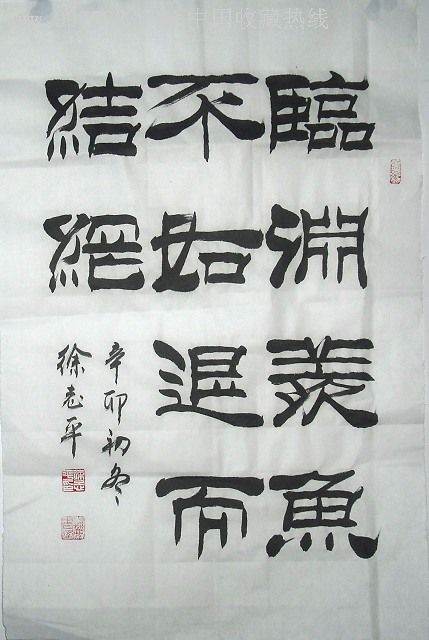 中国收藏热线
臨淵羨魚
不如退而
結網
辛卯初冬
徐志平